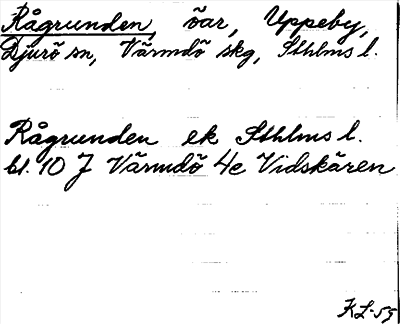 Rågrunden, öar, Uppeby,
Djurö sn, Värmdö skg, Sthlms l.
Rågrunden ek Sthlms l.
bl. 10 J Värmdö 4e Vidskären
KL-55